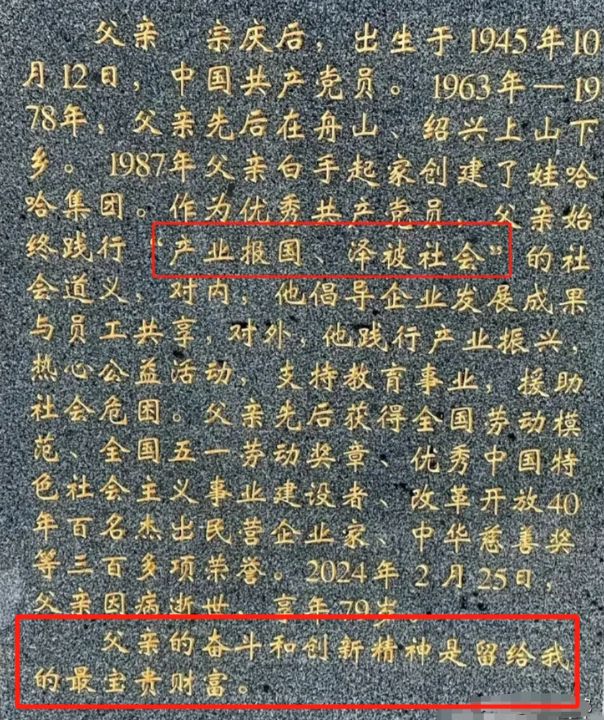 父亲 宗庆后，出生于1945年10
月12日，中国共产党员。1963年—19
78年，父亲先后在舟山、绍兴上山下
乡。1987年父亲白手起家创建了娃哈
哈集团。作为优秀共产党员，父亲始
终践行“产业报国、泽被社会”的社
会道义，对内，他倡导企业发展成果
与员工共享，对外，他践行产业振兴，
热心公益活动，支持教育事业，援助
社会危困。父亲先后获得全国劳动模
范、全国五一劳动奖章、优秀中国特
色社会主义事业建设者、改革开放40
年百名杰出民营企业家、中华慈善奖
等三百多项荣誉。2024年2月25日，
父亲因病逝世，享年79岁。
父亲的奋斗和创新精神是留给我
的最宝贵财富。